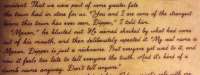 accident. That we were part of some greater fate
the town had in store for us. "You and I are some of the strangest
things this town has ever seen, Dipper," I told him.
"Mason," he blurted out. He seemed shocked by what had come
out of his mouth, and then deliberately repeated it. "My real name is
Mason. Dipper is just a nickname. But everyone got used to it, and
now it feels too late to tell everyone the truth. And it's kind of a
dumb name anyway. Don't tell anyone."